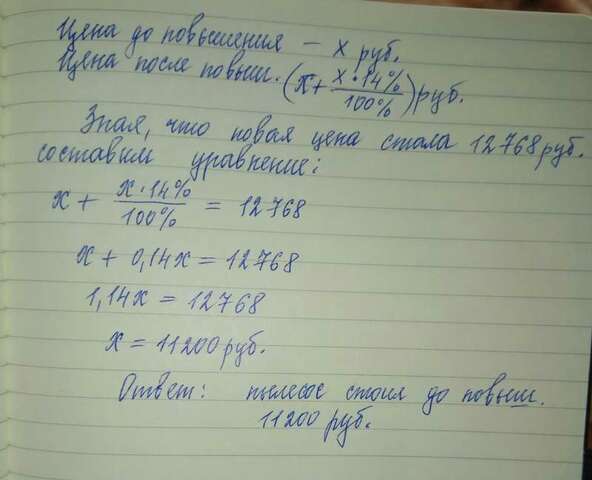 Цена до повышения – x руб.
Цена после повыш. (x + x·14%/100%) руб.
Зная, что новая цена стала 12768 руб.
составим уравнение:
x + x·14%/100% = 12768
x + 0,14x = 12768
1,14x = 12768
x = 11200 руб.
Ответ: пылесос стоил до повыш.
11200 руб.